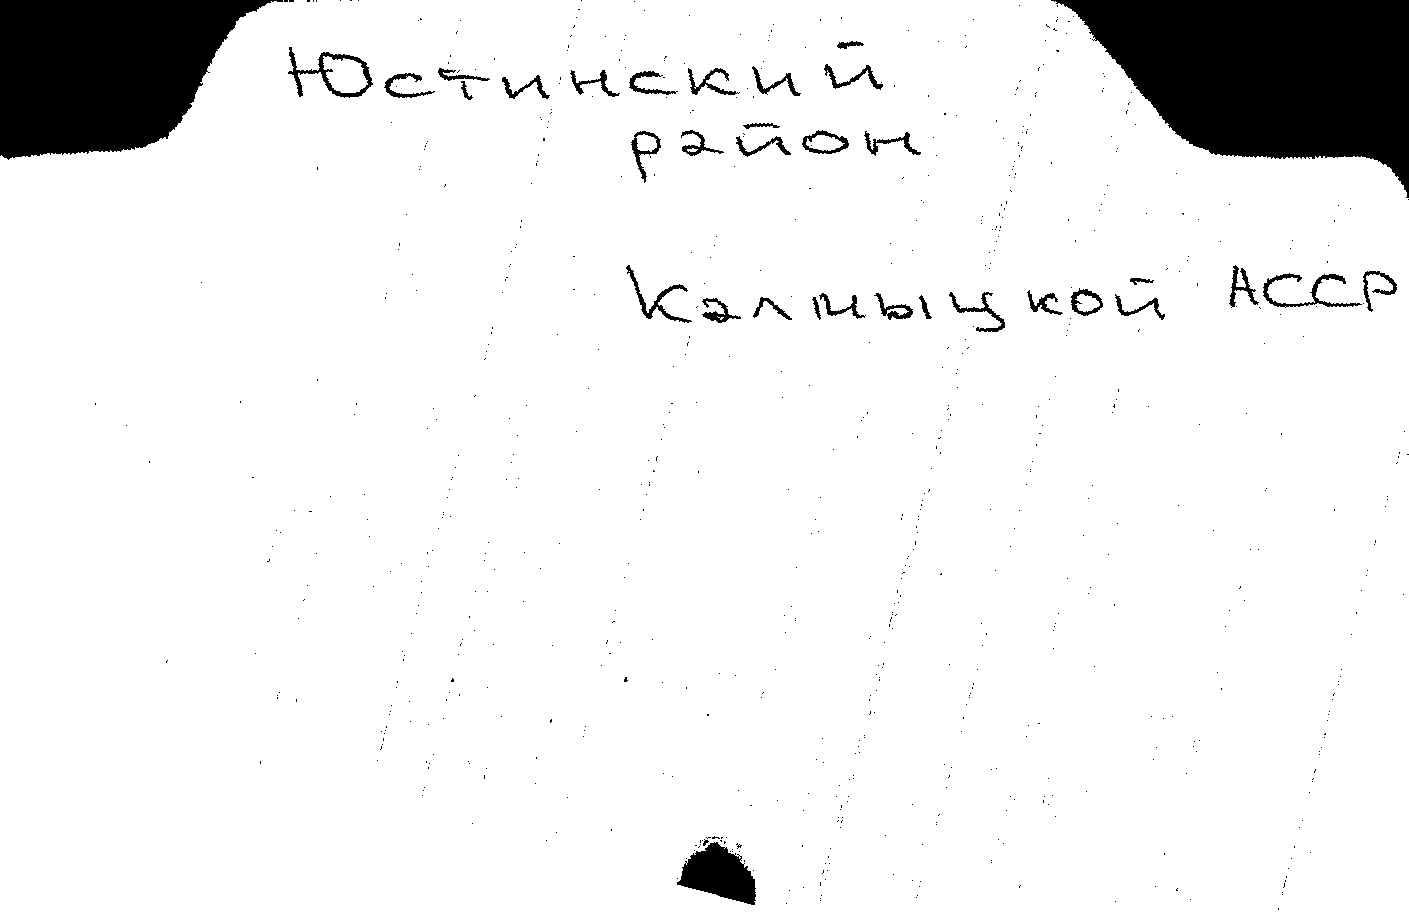 Юстинский
район
Калмыцкой АССР